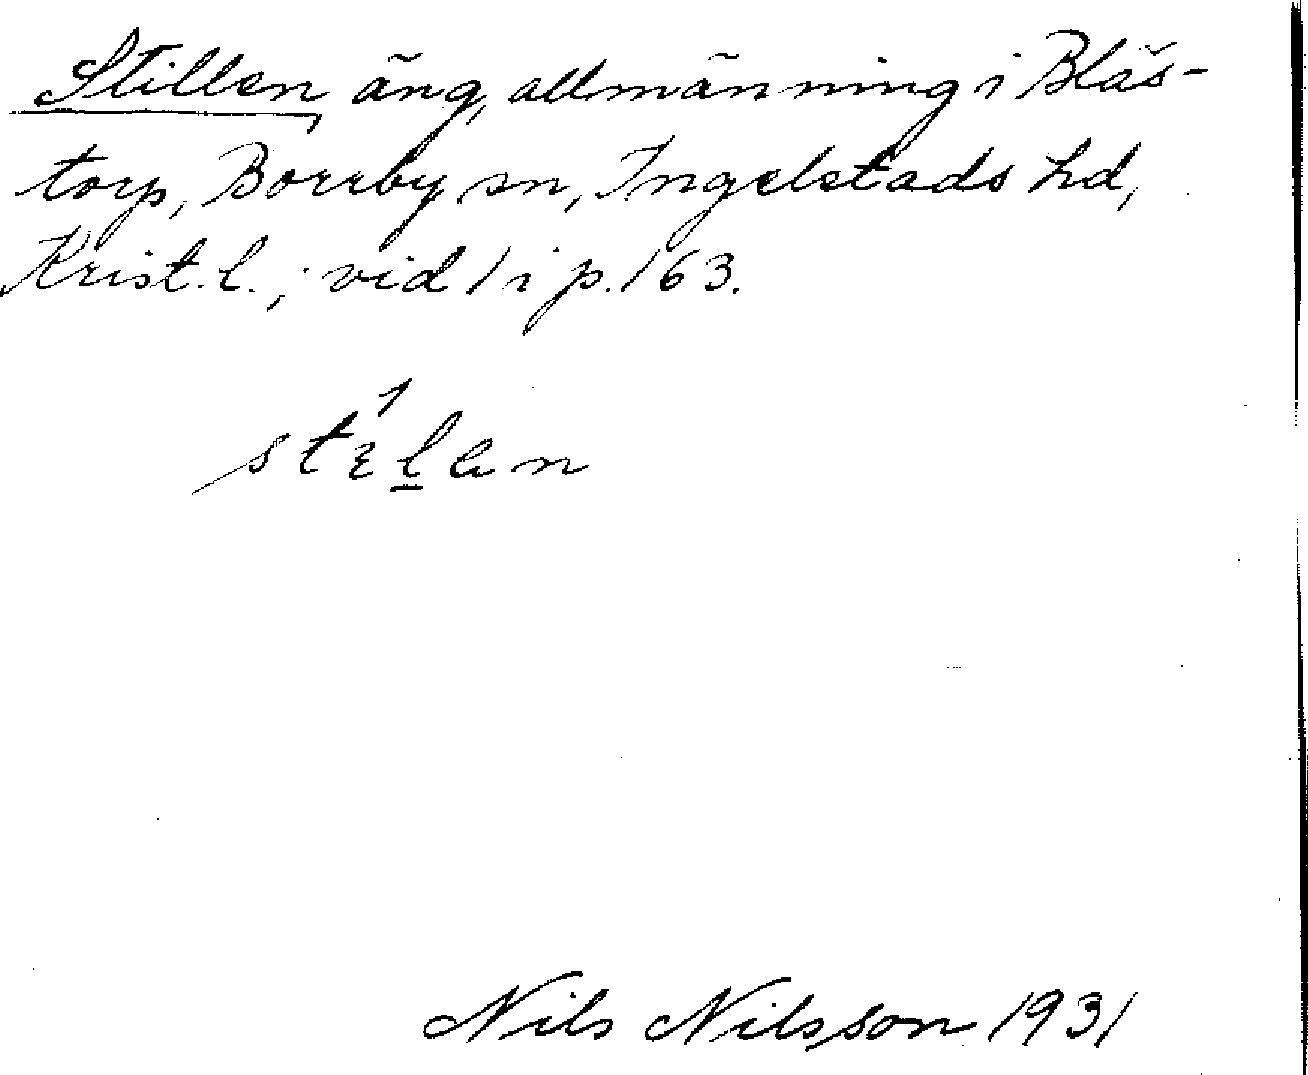 Stillen, äng, allmänning i Bläs-
torp, Borrby sn, Ingelstads hd,
Krist. l.; vid 1 i p. 163.
Nils Nilsson 1931